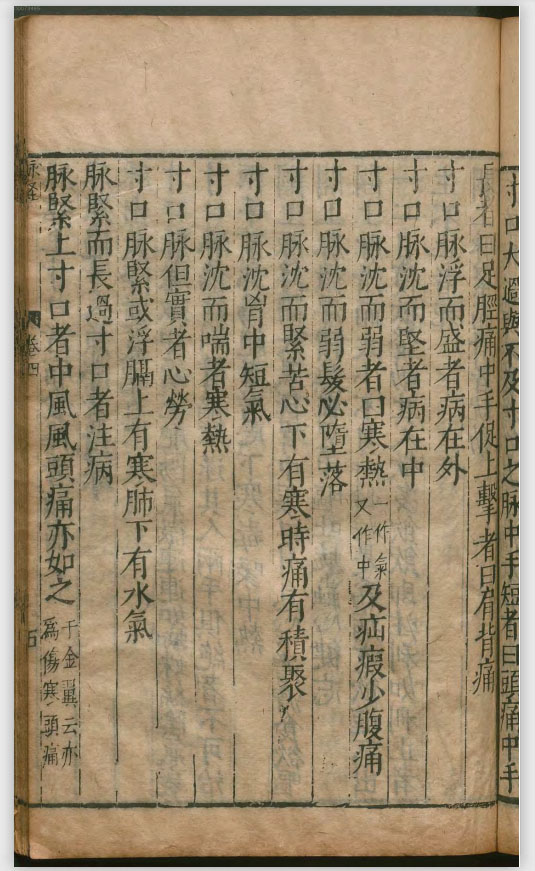 寸口大過與不及寸口之脉中手短者曰頭痛中手
長者曰足脛痛中手促上擊者曰肩背痛
寸口脉浮而盛者病在外
寸口脉沈而堅者病在中
寸口脉沈而弱者曰寒熱一作氣又作中及疝瘕少腹痛
寸口脉沈而弱髮必墮落
寸口脉沈而緊苦心下有寒時痛有積聚
寸口脉沈胷中短氣
寸口脉沈而喘者寒熱
寸口脉但實者心勞
寸口脉緊或浮膈上有寒肺下有水氣
脉緊而長過寸口者注病
脉緊上寸口者中風風頭痛亦如之千金翼云亦爲傷寒頭痛
脉經
卷四
五